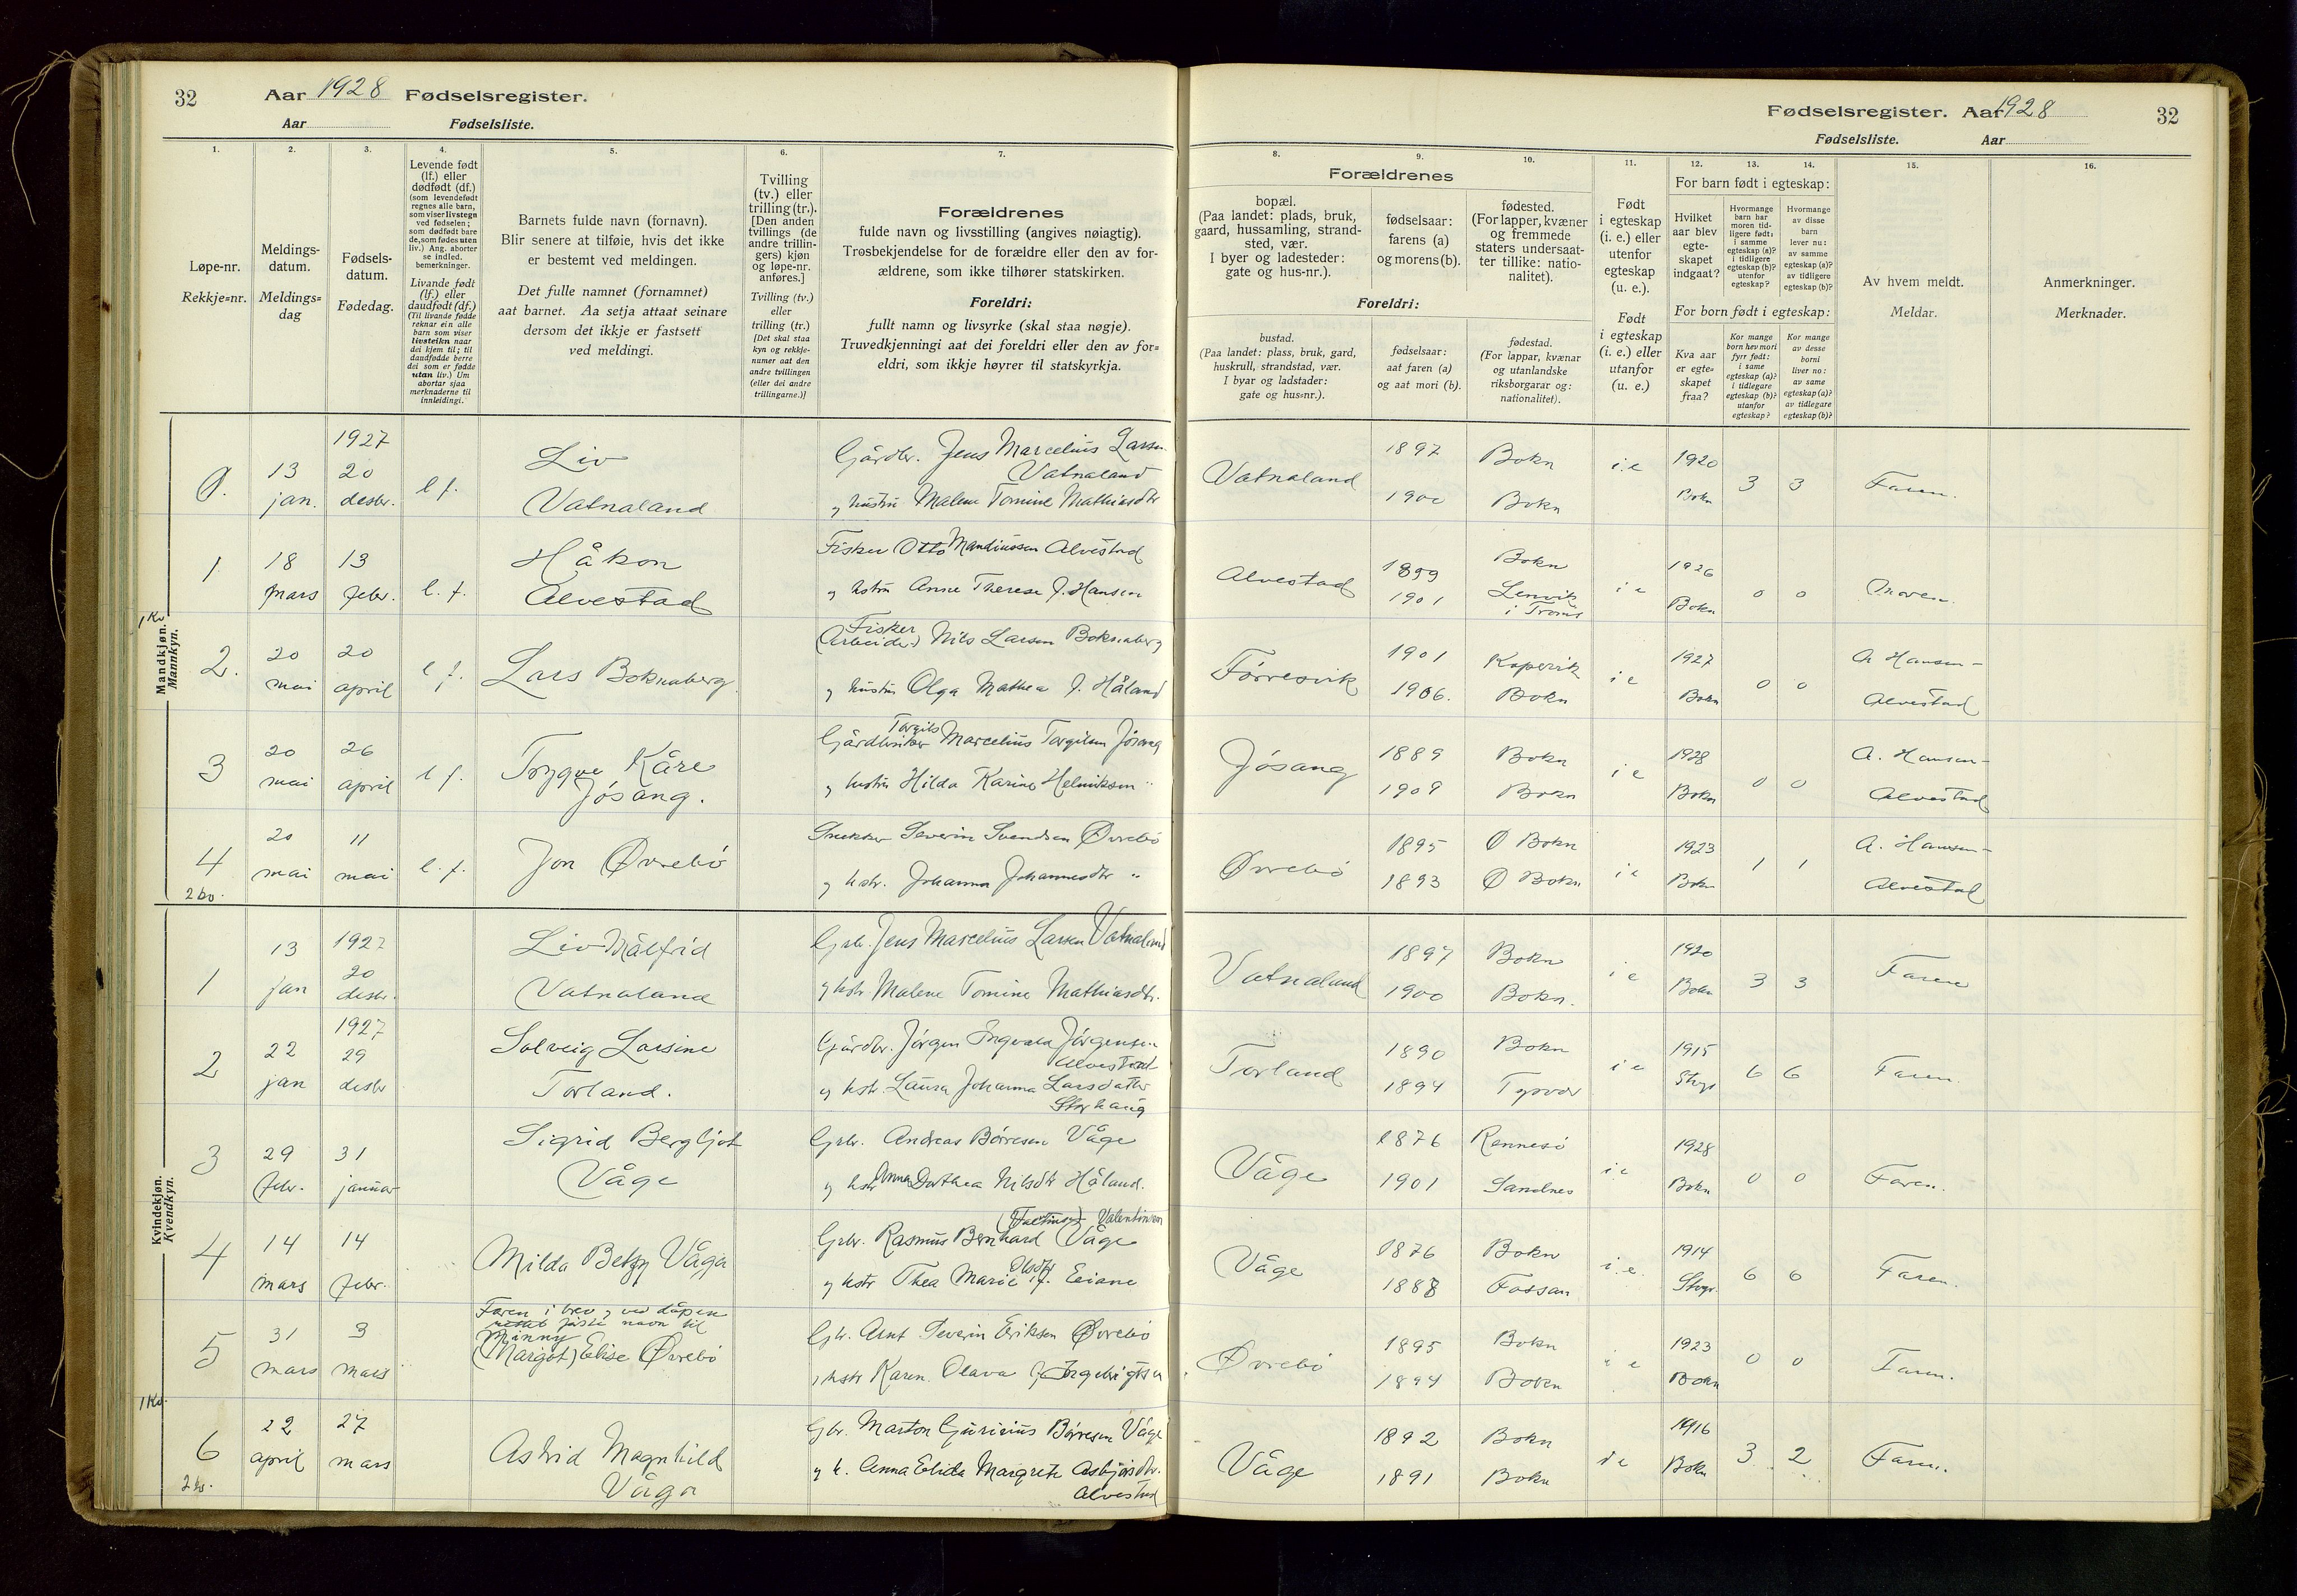 32 Aar 1928 Fødselsregister.
Aar Fødselsliste.
Fødselsregister. Aar 1928 32
Fødselsliste. Aar
1.
Løpe-nr.
Rekkje=nr.
2.
Meldings-
datum.
Meldings=
dag
3.
Fødsels-
datum.
Fødedag.
4.
Levende født
(lf.) eller
dødfødt (df.)
(som levendefødt
regnes alle barn,
som viser livstegn
ved fødselen;
som dødfødt bare
de, som fødes uten
liv.) Ang. aborter
se indled.
bemerkninger.
Livande født
(lf.) eller
daudfødt (df.)
(Til livande fødde
reknar ein alle
barn som viser
livsteikn naar
dei kjem til; til
daudfødde berre
dei som er fødde
utan liv.) Um
abortar sjaa
merknaderne til
innleidingi.
5.
Barnets fulde navn (fornavn).
Blir senere at tilføie, hvis det ikke
er bestemt ved meldingen.
Det fulle namnet (fornamnet)
aat barnet. Aa setja attaat seinare
dersom det ikkje er fastsett
ved meldingi.
6.
Tvilling
(tv.) eller
trilling (tr.).
[Den anden
tvillings (de
andre trillin-
gers) kjøn
og løpe-nr.
anføres.]
Tvilling (tv.)
eller
trilling (tr.)
[Det skal staa
kyn og rekkje-
numer aat den
andre tvillingen
(eller dei andre
trillingarne.)]
7.
Forældrenes
fulde navn og livsstilling (angives nøiagtig).
Trosbekjendelse for de forældre eller den av for-
ældrene, som ikke tilhører statskirken.
Foreldri:
fullt namn og livsyrke (skal staa nøgje).
Truvedkjenningi aat dei foreldri eller den av for=
eldri, som ikkje høyrer til statskyrkja.
8.
Forældrenes
bopæl.
(Paa landet: plads, bruk,
gaard, hussamling, strand-
sted, vær.
I byer og ladesteder:
gate og hus-nr.).
Foreldri:
bustad.
(Paa landet: plass, bruk, gard,
huskrull, strandstad, vær.
I byar og ladstader:
gate og hus=nr.).
9.
fødselsaar:
farens (a)
og morens (b).
fødselsaar:
aat faren (a)
og aat mori (b).
10.
fødested.
(For lapper, kvæner
og fremmede
staters undersaat-
ter tillike: natio-
nalitet).
fødestad.
(For lappar, kvænar
og utanlandske
riksborgarar og:
nationalitet).
11.
Født
i egteskap
(i. e.) eller
utenfor
egteskap
(u. e.).
Født
i egteskap
(i. e.) eller
utanfor
(u. e.)
12.
For barn født i egteskap:
Hvilket
aar blev
egte-
skapet
indgaat?
For born født i egteskap:
Kva aar
er egte=
skapet
fraa?
13.
Hvormange
barn har
moren tid-
ligere født:
i samme
egteskap (a)?
i tidligere
egteskap (b)?
utenfor
egteskap?
Kor mange
born hev mori
fyrr født:
i same
egteskap (a)?
i tidlegare
egteskap (b)?
utanfor
egteskap?
14.
Hvormange
av disse
barn
lever nu:
av samme
egteskap (a)?
av tidligere
egteskap (b)?
Kor mange
av desse
borni
liver no:
av same
egteskap (a)?
av tidlegare
egteskap (b)?
15.
Av hvem meldt.
Meldar.
16.
Anmerkninger.
Merknader.
Mandkjøn.
Mannkyn.
1 Kv.
0. 13 jan. 1927 20 desbr. l f. Liv
Vatnaland
Gårdbr. Jens Marcelius Larsen
Vatnaland
og hustru Malene Tomine Mathiasdtr
Vatnaland 1897 1900 Bokn Bokn i.e 1920 Bokn 3 3 Faren.
1 18 mars 13 febr. l. f. Håkon
Alvestad
Fisker Otto Mandiussen Alvestad
og hstru Anne Therese f. Hansen
Alvestad 1899 1901 Bokn Lenvik i Troms i e 1926 Bokn 0 0 Moren.
2. 20 mai 20 april l f. Lars Boknaberg
Fisker
(Arbeider) Nils Larsen Boknaberg
og hustru Olga Mathea f. Håland
Førresvik 1901 1906. Kopervik Bokn i e 1927 Bokn 0 0 A. Hansen-
Alvestad
3 20 mai 26 april l f. Trygve Kåre
Jósang.
Torgils
Gårdbruker Marcelius Torgilsen Jósang
og hustru Hilda Karine Helmiksen "
Jósang 1889 1909 Bokn Bokn i e 1928 Bokn 0 0 A. Hansen-
Alvestad
4 20 mai 11 mai l. f. Jon Øvrebó
2 kv.
Snekker Severin Svendsen Øvrebó
og hstr. Johanna Johannesdtr "
Øvrebó 1895 1893 Ø Bokn Ø Bokn i e 1923 Bokn 1 1 A. Hansen-
Alvestad
Kvindekjøn.
Kvendkyn.
1 13 jan 1927 20 desbr. Liv Målfrid
Vatnaland
Grbr. Jens Marcelius Larsen Vatnaland
og hstr. Malene Tomine Mathiasdtr.
Vatnaland 1897 1900 Bokn Bokn. i e 1920 Bokn 3 3 Faren
2 22 jan 1927 29 desbr Solveig Larsine
Torland.
Gårdbr. Jórgen Ingvald Jórgensen
Alvestad
og hstr. Laura Johanna Larsdatter
Storhaug
Torland 1890 1894 Bokn Tysvær i e 1915 Stvgr 6 6 Faren.
3 29 febr. 31 januar Sigrid Bergljot
Våge
Grbr. Andreas Børresen Våge
og hstr Anna Dorthea Nilsdtr Håland.
Våge 1876 1901 Rennesó Sandnes i e 1928 Bokn 0 0 Faren.
4 14 mars 14 febr. Milda Betzy Våga
Valentinsen
Grbr. Rasmus Bernhard Våge
og hstr Thea Marie Olsdtr f. Eiane
Våge 1876 1888 Bokn Fossan i.e. 1914 Stvgr. 6 6 Faren.
5 31 mars 3 mars Faren i brev og ved dåpen
navn til
Minny
(Margot) Elise Øvrebó
1 Kv.
Gbr. Arnt Severin Eriksen Øvrebó
og hstr Karen Olava f. Ingebrigtsen
Øvrebó 1895 1894 Bokn Bokn i e 1923 Bokn 0 0 Faren.
6 22 april 27 mars Astrid Magnhild
Våga
2 kv.
Gbr. Marton Gurinius Børresen Våge
og h. Anna Elida Margrete Asbjørsdtr.
Alvestad
Våge 1892 1891 Bokn Bokn i e 1916 Bokn 3 2 Faren.